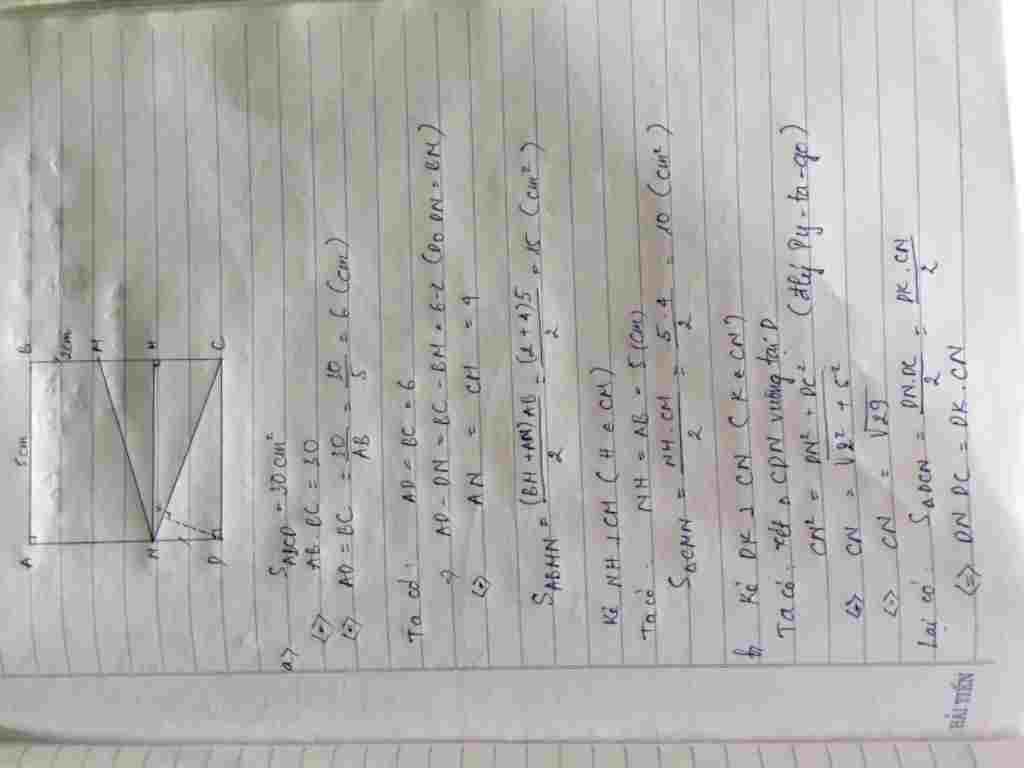 A 5cm B
2cm
M
N H
D C
a) S_ABCD = 30cm²
<=> AB. BC = 30
<=> AD = BC = 30/AB = 30/5 = 6 (cm)
Ta có: AD = BC = 6
=> AD - DN = BC - BM = 6-2 (Do DN = BM)
<=> AN = CM = 4
S_ABMN = (BM + AN) AB/2 = (2+4)5/2 = 15 (cm²)
Kẻ NH ⊥ CM (H ∈ CM)
Ta có: NH = AB = 5 (cm)
= NH. CM/2 = 5.4/2 = 10 (cm²)
b) Kẻ DK ⊥ CN (K ∈ CN)
Ta có: xét Δ CDN vuông tại D
CN² = DN² + DC² (đlý Py-ta-go)
<=> CN = √2² + 5²
<=> CN = √29
Lại có: S_ΔDCN = DN.DC/2 = DK.CN/2
<=> DN DC = DK. CN
HẢI TIẾN